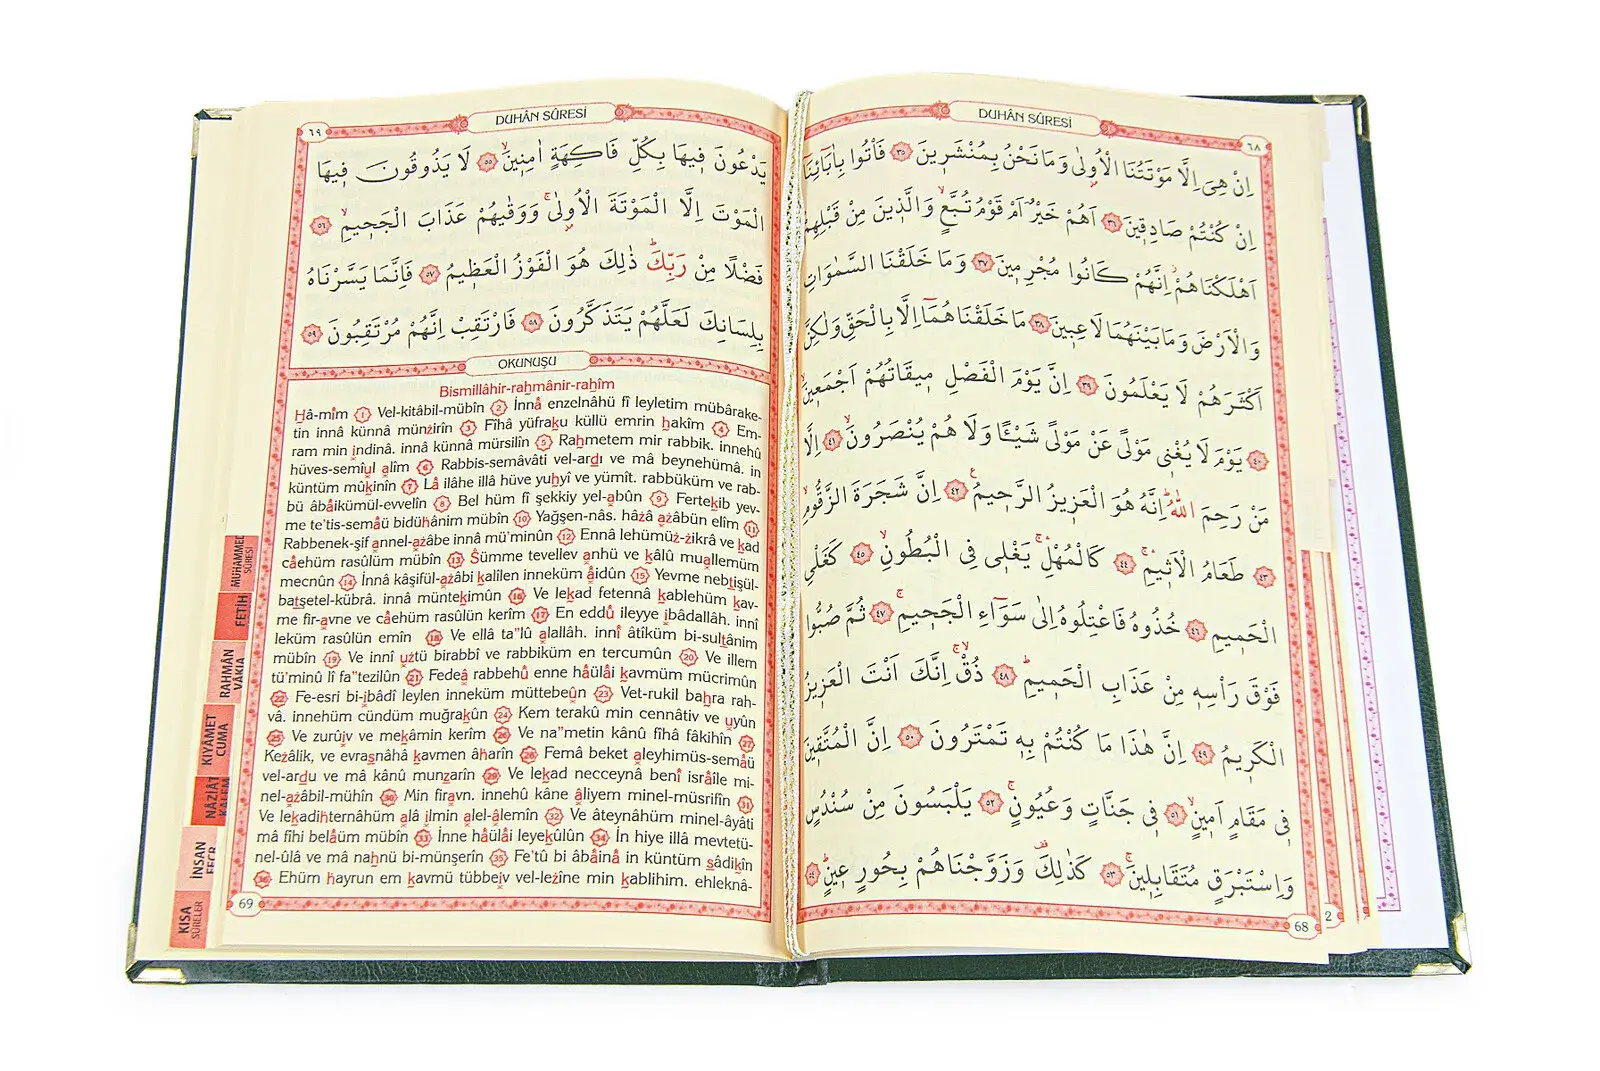 DUHÂN SÛRESİ
٦٨
اِنْ هِيَ اِلَّا مَوْتَتُنَا الْاُولٰى وَمَا نَحْنُ بِمُنْشَرٖينَ ٣٥ فَأْتُوا بِاٰبَٓائِنَٓا
اِنْ كُنْتُمْ صَادِقٖينَ ٣٦ اَهُمْ خَيْرٌ اَمْ قَوْمُ تُبَّعٍ وَالَّذٖينَ مِنْ قَبْلِهِمْ
اَهْلَكْنَاهُمْ اِنَّهُمْ كَانُوا مُجْرِمٖينَ ٣٧ وَمَا خَلَقْنَا السَّمٰوَاتِ
وَالْاَرْضَ وَمَا بَيْنَهُمَا لَاعِبٖينَ ٣٨ مَا خَلَقْنَاهُمَٓا اِلَّا بِالْحَقِّ وَلٰكِنَّ
اَكْثَرَهُمْ لَا يَعْلَمُونَ ٣٩ اِنَّ يَوْمَ الْفَصْلِ مٖيقَاتُهُمْ اَجْمَعٖينَ
٤٠ يَوْمَ لَا يُغْنٖى مَوْلًى عَنْ مَوْلًى شَيْـًٔا وَلَا هُمْ يُنْصَرُونَ ٤١ اِلَّا
مَنْ رَحِمَ اللّٰهُ اِنَّهُ هُوَ الْعَزٖيزُ الرَّحٖيمُ ٤٢ اِنَّ شَجَرَةَ الزَّقُّومِ
٤٣ طَعَامُ الْاَثٖيمِ ٤٤ كَالْمُهْلِ يَغْلٖى فِى الْبُطُونِ ٤٥ كَغَلْىِ
الْحَمٖيمِ ٤٦ خُذُوهُ فَاعْتِلُوهُ اِلٰى سَوَٓاءِ الْجَحٖيمِ ٤٧ ثُمَّ صُبُّوا
فَوْقَ رَاْسِهٖ مِنْ عَذَابِ الْحَمٖيمِ ٤٨ ذُقْ اِنَّكَ اَنْتَ الْعَزٖيزُ
الْكَرٖيمُ ٤٩ اِنَّ هٰذَا مَا كُنْتُمْ بِهٖ تَمْتَرُونَ ٥٠ اِنَّ الْمُتَّقٖينَ
فٖى مَقَامٍ اَمٖينٍ ٥١ فٖى جَنَّاتٍ وَعُيُونٍ ٥٢ يَلْبَسُونَ مِنْ سُنْدُسٍ
وَاِسْتَبْرَقٍ مُتَقَابِلٖينَ ٥٣ كَذٰلِكَ وَزَوَّجْنَاهُمْ بِحُورٍ عٖينٍ ٥٤
68
2
٦٩
DUHÂN SÛRESİ
يَدْعُونَ فٖيهَا بِكُلِّ فَاكِهَةٍ اٰمِنٖينَ ٥٥ لَا يَذُوقُونَ فٖيهَا
الْمَوْتَ اِلَّا الْمَوْتَةَ الْاُولٰى وَوَقٰيهُمْ عَذَابَ الْجَحٖيمِ ٥٦
فَضْلًا مِنْ رَبِّكَ ذٰلِكَ هُوَ الْفَوْزُ الْعَظٖيمُ ٥٧ فَاِنَّمَا يَسَّرْنَاهُ
بِلِسَانِكَ لَعَلَّهُمْ يَتَذَكَّرُونَ ٥٨ فَارْتَقِبْ اِنَّهُمْ مُرْتَقِبُونَ ٥٩
OKUNUŞU
Bismillâhir-rahmânir-rahîm
Hâ-mîm 1 Vel-kitâbil-mübîn 2 İnnâ enzelnâhü fî leyletim mübârake-
tin innâ künnâ münzirîn 3 Fîhâ yüfraku küllü emrin hakîm 4 Em-
ram min ındinâ. innâ künnâ mürsilîn 5 Rahmetem mir rabbik. innehû
hüves-semîul alîm 6 Rabbis-semâvâti vel-ardı ve mâ beynehümâ. in
küntüm mûkınîn 7 Lâ ilâhe illâ hüve yuhyî ve yümît. rabbüküm ve rab-
bü âbâikümül-evvelîn 8 Bel hüm fî şekkiy yel-abûn 9 Fertekıb yev-
me te'tis-semâü bidühânim mübîn 10 Yağşen-nâs. hâzâ azâbün elîm 11
Rabbenek-şif annel-azâbe innâ mü'minûn 12 Ennâ lehümüz-zikrâ ve kad
câehüm rasûlüm mübîn 13 Sümme tevellev anhü ve kâlû muallemüm
mecnûn 14 İnnâ kâşifül-azâbi kalîlen inneküm âidûn 15 Yevme nebtışül-
batşetel-kübrâ. innâ müntekımûn 16 Ve lekad fetennâ kablehüm kav-
me fir-avne ve câehüm rasûlün kerîm 17 En eddû ileyye ıbâdallâh. innî
leküm rasûlün emîn 18 Ve ellâ ta''lû alallâh. innî âtîküm bi-sultânim
mübîn 19 Ve innî uztü birabbî ve rabbiküm en tercumûn 20 Ve illem
tü'minû lî fa''tezilûn 21 Fedeâ rabbehû enne hâülâi kavmüm mücrimûn
22 Fe-esri bi-ıbâdî leylen inneküm müttebeûn 23 Vet-rukil bahra rah-
vâ. innehüm cündüm muğrakûn 24 Kem terakû min cennâtiv ve uyûn
25 Ve zurûıv ve mekâmin kerîm 26 Ve na''metin kânû fîhâ fâkihîn 27
Kezâlik, ve evrasnâhâ kavmen âharîn 28 Femâ beket aleyhimüs-semâü
vel-ardu ve mâ kânû munzarîn 29 Ve lekad necceynâ benî isrâîle mi-
nel-azâbil-mühîn 30 Min firavn. innehû kâne âliyem minel-müsrifîn 31
Ve lekadihternâhüm alâ ılmin alel-âlemîn 32 Ve âteynâhüm minel-âyâti
mâ fîhi belâüm mübîn 33 İnne hâülâi leyekûlûn 34 İn hiye illâ mevtetü-
nel-ûlâ ve mâ nahnü bi-münşerîn 35 Fe'tû bi âbâinâ in küntüm sâdikîn
36 Ehüm hayrun em kavmü tübbeiv vel-lezîne min kablihim. ehleknâ-
69
MUHAMMED
SÛRESİ
FETİH
RAHMÂN
VÂKIA
KIYÂMET
CUMA
NÂZİÂT
KALEM
İNSAN
FECR
KISA
SÛRELER